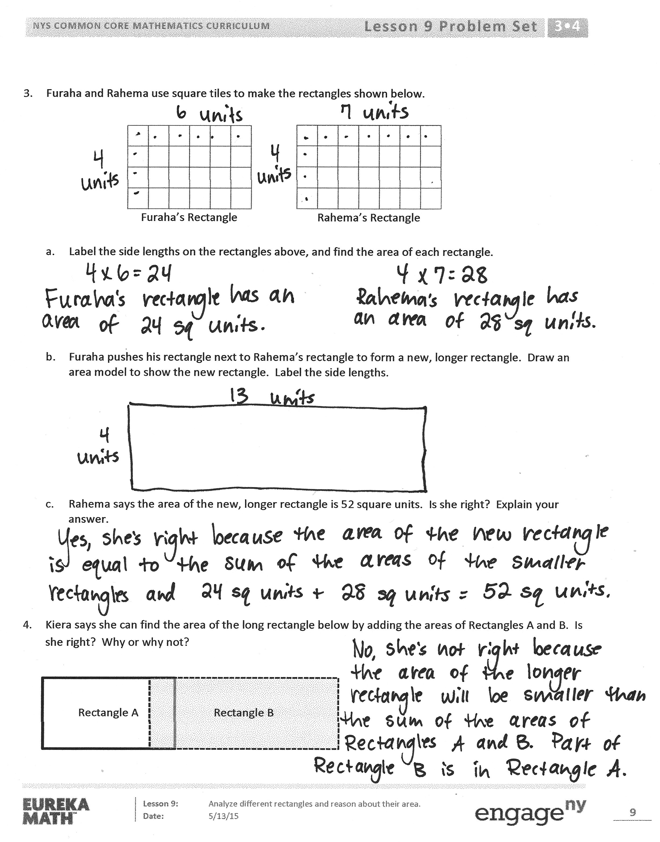 NYS COMMON CORE MATHEMATICS CURRICULUM Lesson 9 Problem Set 3•4
3. Furaha and Rahema use square tiles to make the rectangles shown below.
6 units 7 units
4 units 4 units
Furaha's Rectangle Rahema's Rectangle
a. Label the side lengths on the rectangles above, and find the area of each rectangle.
4 x 6 = 24 4 x 7 = 28
Furaha's rectangle has an Rahema's rectangle has
area of 24 sq units. an area of 28 sq units.
b. Furaha pushes his rectangle next to Rahema's rectangle to form a new, longer rectangle. Draw an
area model to show the new rectangle. Label the side lengths.
13 units
4
units
c. Rahema says the area of the new, longer rectangle is 52 square units. Is she right? Explain your
answer.
Yes, she's right because the area of the new rectangle
is equal to the sum of the areas of the smaller
rectangles and 24 sq units + 28 sq units = 52 sq units.
4. Kiera says she can find the area of the long rectangle below by adding the areas of Rectangles A and B. Is
she right? Why or why not?
No, she's not right because
the area of the longer
rectangle will be smaller than
the sum of the areas of
Rectangles A and B. Part of
Rectangle B is in Rectangle A.
Rectangle A Rectangle B
EUREKA
MATH™
Lesson 9: Analyze different rectangles and reason about their area.
Date: 5/13/15
engage ny
9